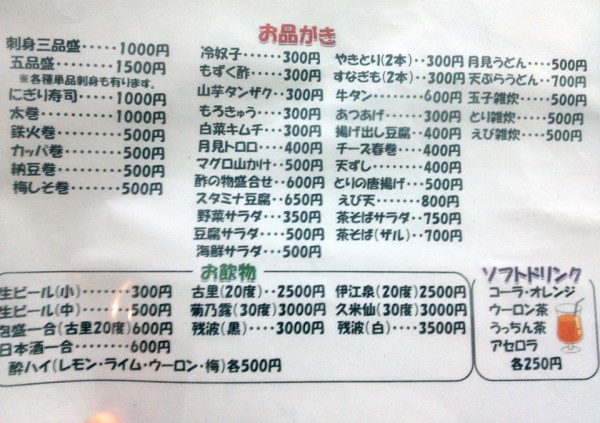 お品がき
刺身三品盛・・・・・1000円
五品盛・・・・・・・1500円
※各種単品刺身も有ります。
にぎり寿司・・・・1000円
太巻・・・・・・・・1000円
鉄火巻・・・・・・・500円
カッパ巻・・・・・・500円
納豆巻・・・・・・・500円
梅しそ巻・・・・・500円
冷奴子・・・・・300円
もずく酢・・・・300円
山芋タンザク・・300円
もろきゅう・・・300円
白菜キムチ・・・300円
月見トロロ・・・400円
マグロ山かけ・・500円
酢の物盛合せ・・600円
スタミナ豆腐・・650円
野菜サラダ・・・350円
豆腐サラダ・・・500円
海鮮サラダ・・・500円
やきとり(2本)・・300円
すなぎも(2本)・・300円
牛タン・・・・・・600円
あつあげ・・・・・300円
揚げ出し豆腐・・400円
チーズ春巻・・・・400円
天ずし・・・・・・400円
とりの唐揚げ・・・500円
えび天・・・・・・800円
茶そばサラダ・・750円
茶そば(ザル)・・700円
月見うどん・・・・500円
天ぷらうどん・・700円
玉子雑炊・・・・・500円
とり雑炊・・・・・500円
えび雑炊・・・・・500円
お飲物
生ビール(小)・・・・・・・300円
生ビール(中)・・・・・・・500円
泡盛一合(古里20度)600円
日本酒一合・・・・・・・・600円
酎ハイ(レモン・ライム・ウーロン・梅)各500円
古里(20度)・・2500円
菊乃露(30度)3000円
残波(黒)・・・・3000円
伊江泉(20度)2500円
久米仙(30度)3000円
残波(白)・・・・3500円
ソフトドリンク
コーラ・オレンジ
ウーロン茶
うっちん茶
アセロラ
各250円